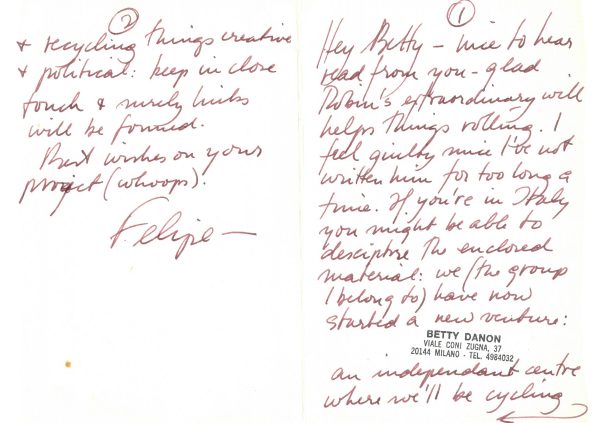 ①
Hey Betty – nice to hear
read from you – glad
Robin's extraordinary will
helps things rolling. I
feel guilty since I've not
written him for too long a
time. If you're in Italy
you might be able to
desciphre the enclosed
material: we (the group
I belong to) have now
started a new venture:
BETTY DANON
VIALE CONI ZUGNA, 37
20144 MILANO - TEL. 4984032
an independant centre
where we'll be cycling
②
& recycling things creative
& political: keep in close
touch & surely links
will be found.
Best wishes on your
project (whoops).
Felipe –